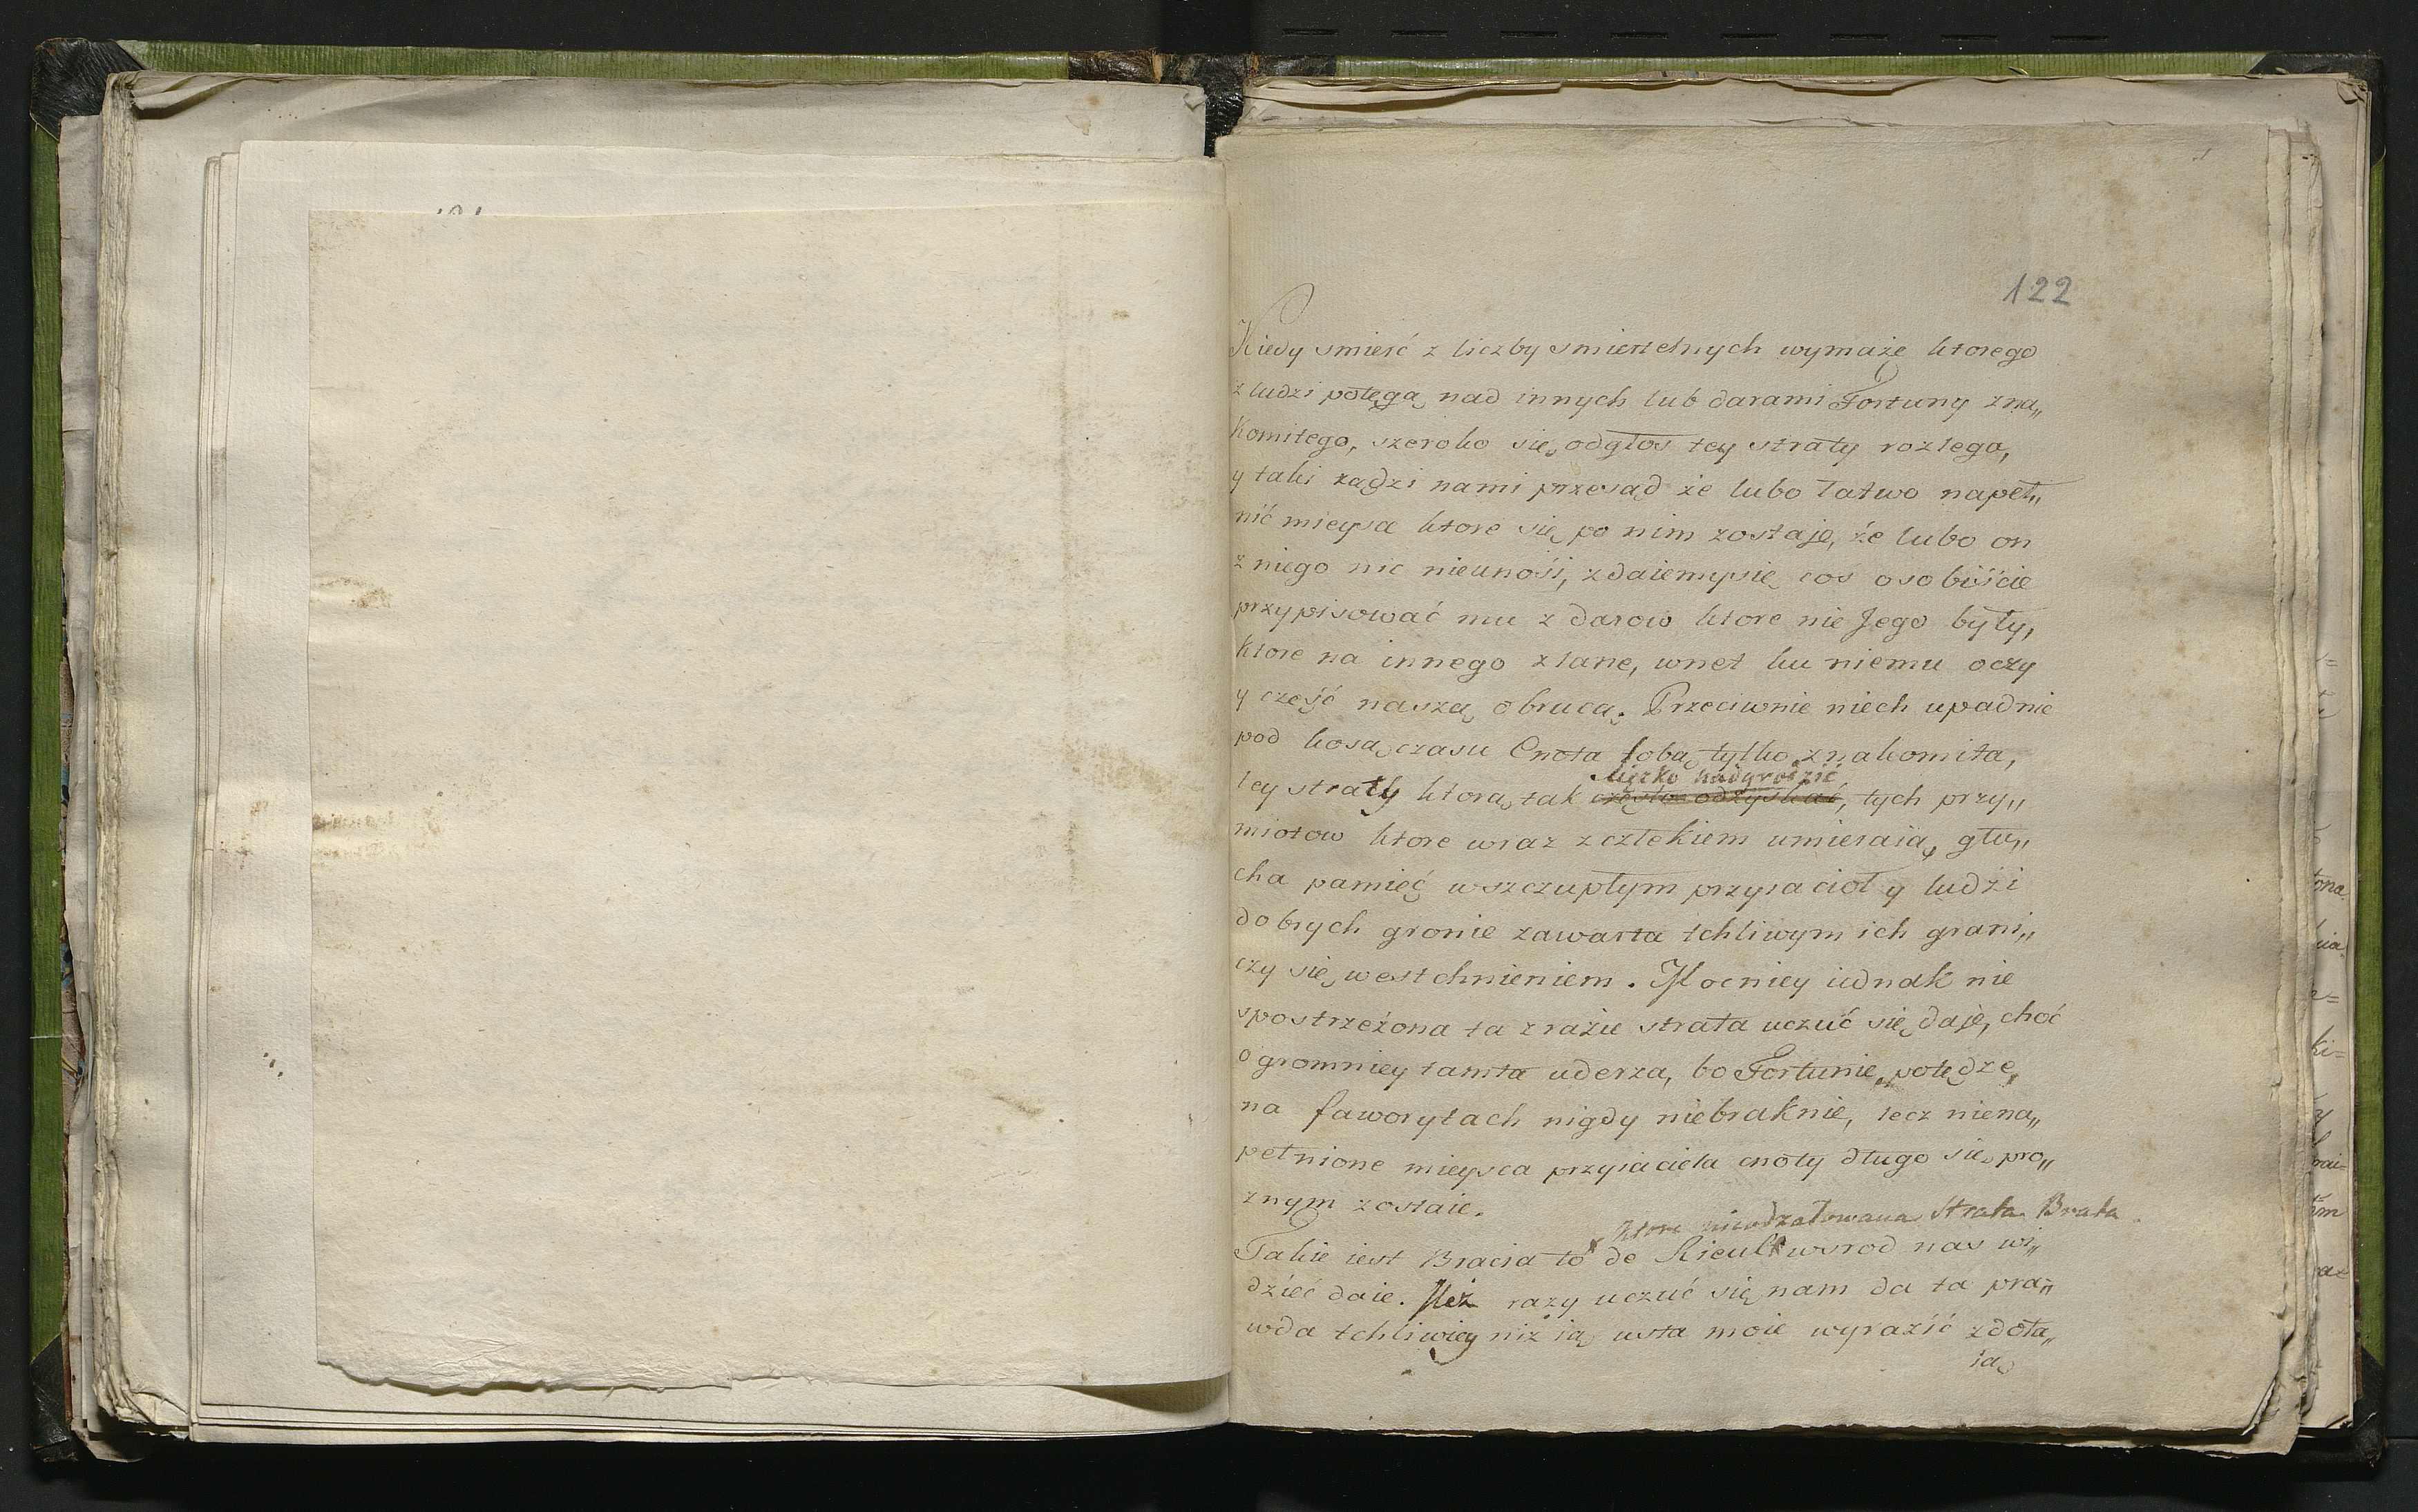 122
Kiedy smierć z liczby smiertelnych wymaże ktorego
z ludzi potęgą nad innych lub darami Fortuny zna„
komitego, szeroko się odgłos tey straty rozlega,
y taki rządzi nami przesąd że lubo łatwo napeł„
nić mieysce ktore się po nim zostaje, że lubo on
z niego nic nieunosi, zdaiemysię cos osobiście
przypisować mu z darow ktore nie Jego były,
ktore na innego zlane, wnet ku niemu oczy
y cześć naszą obrucą. Przeciwnie niech upadnie
pod kosą czasu Cnota sobą tylko znakomita,
ciężko nadgrodzić
tey straty ktorą tak często odzyskać, tych przy„
miotow ktore wraz z człekiem umieraią, głu„
cha pamięć w szczupłym przyiacioł y ludzi
dobrych gronie zawarta tchliwym ich grani„
czy się westchnieniem. Mocniey iednak nie
spostrzeżona ta zrazu strata uczuć się daje, choć
ogromniey tamta uderza, bo Fortunie, potędze,
na faworytach nigdy niebraknie, lecz niena„
pełnione mieysca przyiaciela cnoty długo się pro„
znym zostaie.
ktore nieodżałowana Strata Brata
Takie iest Bracia to de Rieule wsrod nas wi„
dzieć daie. Ileż razy uczuć się nam da ta pra„
wda tchliwiey niż ią usta moie wyrazić zdoła„
ią